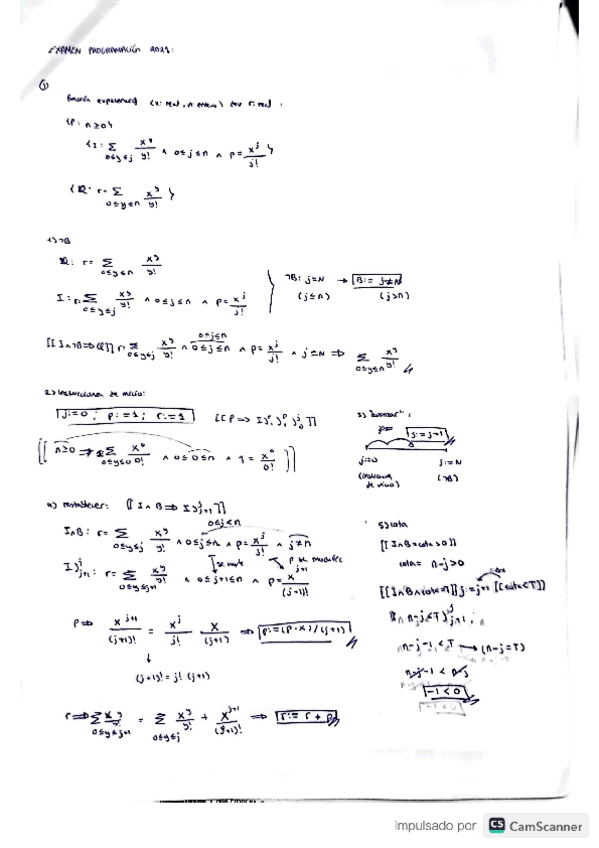 EXAMEN PROGRAMACIÓN 2021:
①
función exponencial (x: real, n: entero) dev r: real;
{P: n≥0}
{I: Σ 0≤y≤j x^y/y! ∧ 0≤j≤n ∧ p= x^j/j! }
{Q: r= Σ 0≤y≤n x^y/y! }
1) ¬B
Q: r= Σ 0≤y≤n x^y/y!
I: r= Σ 0≤y≤j x^y/y! ∧ 0≤j≤n ∧ p= x^j/j!
¬B: j=N → B:= j≠N
(j≤n) (j>n)
[[I∧¬B⇒Q]] r= Σ 0≤y≤j x^y/y! ∧ 0≤j≤n ∧ p= x^j/j! ∧ j=N ⇒ Σ 0≤y≤n x^y/y!
0≤j≤n
2) Instrucciones de inicio:
j:=0; p:=1; r:=1
[[n≥0 ⇒ 1= Σ 0≤y≤0 x^0/0! ∧ 0≤0≤n ∧ 1= x^0/0! ]]
3) "avanzar":
j:=j+1
j:=0 j:=N
(instrucción de inicio) (¬B)
4) restablecer: [[I∧B⇒I)j j+1]]
0≤j<n
I∧B: r= Σ 0≤y≤j x^y/y! ∧ 0≤j≤n ∧ p= x^j/j! ∧ j≠n
p se modifica
I)j j+1: r= Σ 0≤y≤j+1 x^y/y! ∧ 0≤j+1≤n ∧ p= x^j+1/(j+1)!
p⇒ x^j+1/(j+1)! = x^j/j! x/(j+1) ⇒ p:=(p·x)/(j+1)
(j+1)! = j! (j+1)
r⇒ Σ 0≤y≤j+1 x^y/y! = Σ 0≤y≤j x^y/y! + x^j+1/(j+1)! ⇒ r:= r+p
5) cota
[[I∧B⇒cota>0]]
cota= n-j>0
[[I∧B∧cota=T]] j:=j+1 [[cota<T]]
n-j-1<T → (n-j=T)
n-j-1 < n-j
-1<0
impulsado por CS CamScanner